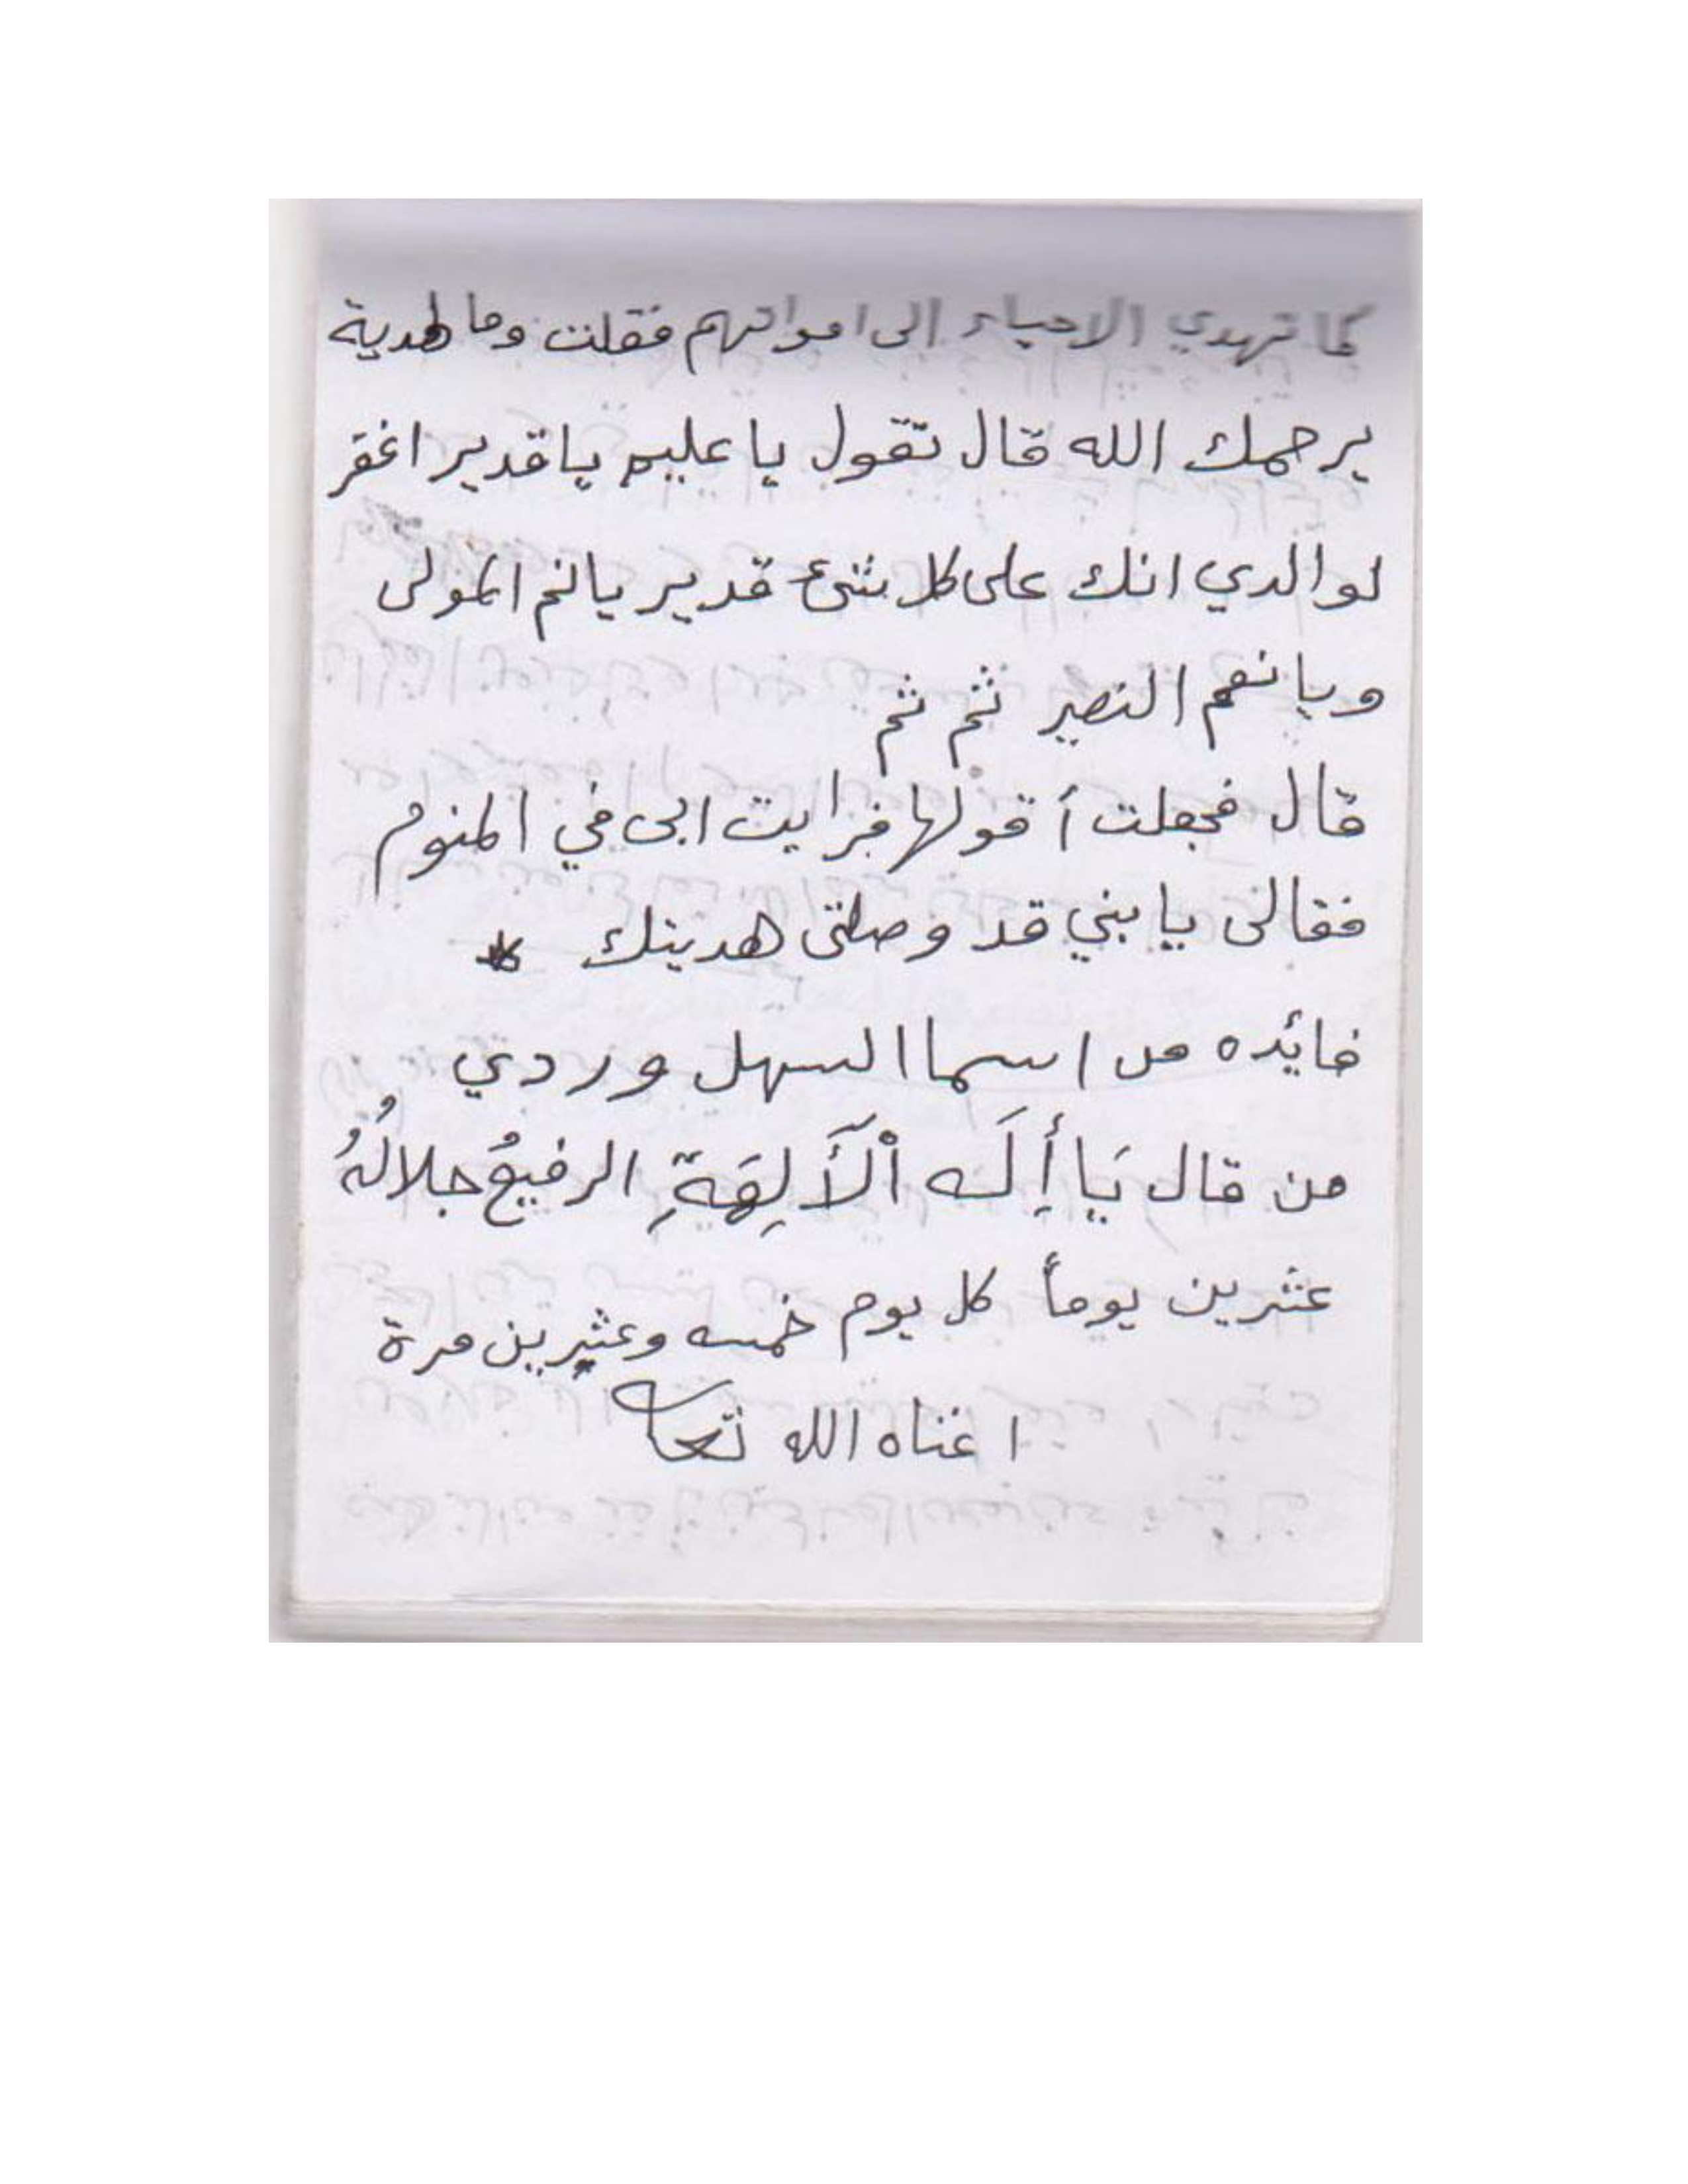 كما تهدي الاحياء الى امواتهم فقلت وما لهدية
يرحمك الله قال تقول يا عليم يا قدير اغفر
لوالدي انك على كل شئ قدير يا نعم المولى
ويا نعم النصير ثم ثم
قال فجعلت أقولها فرايت ابى في المنوم
فقالى يا بني قد وصلتى هديتك *
فائده من اسما السهل وردي
من قال يَا أِلَه اْلآَلِهَةِ الرفيعُ جلالُهُ
عشرين يوماً كل يوم خمسه وعشرين مرة
اغناه الله تعا